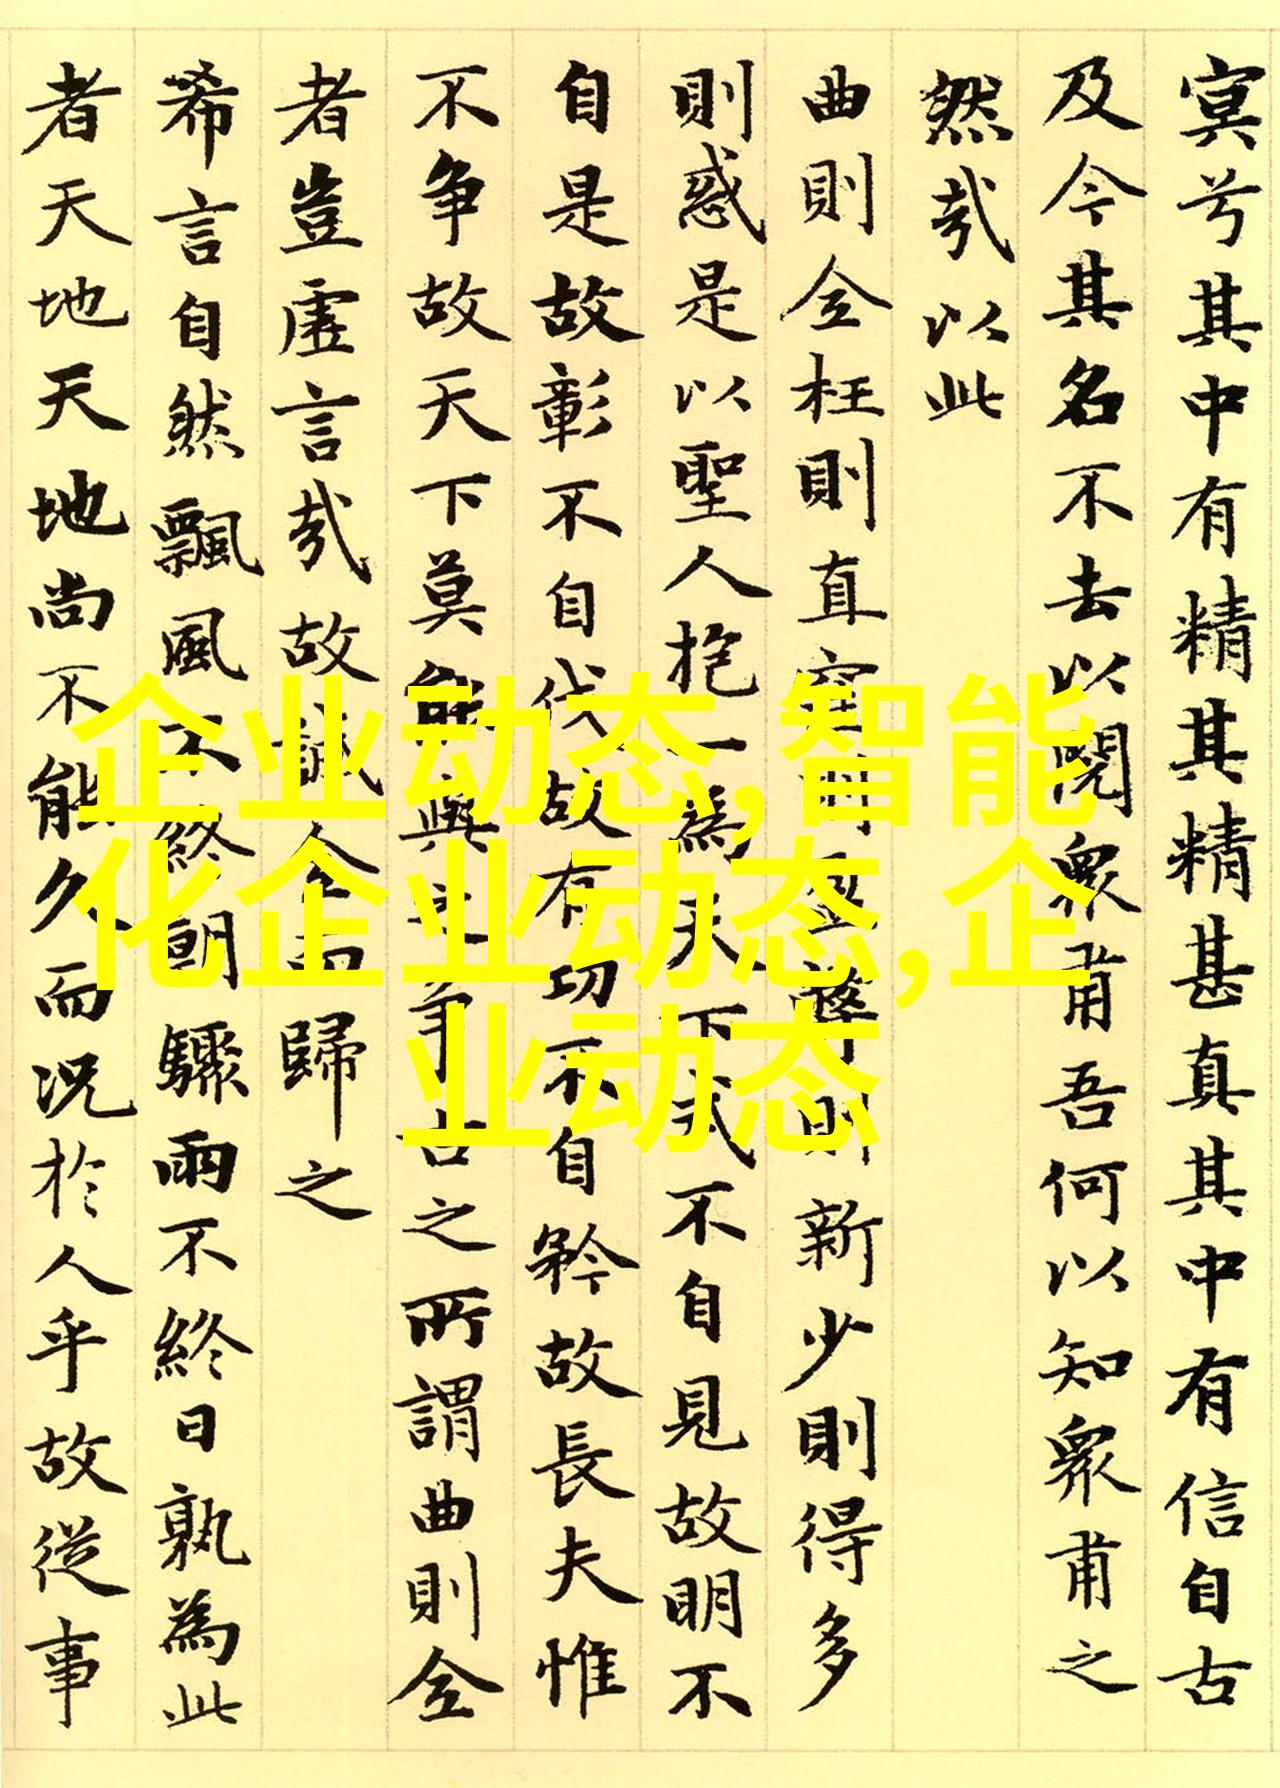 寘兮其中有精其精甚真其中有信自古
及今其名不去以閱衆甫吾何以知衆甫之
然哉以此
曲則全枉則直窪則盈弊則新少則得多
則惑是以聖人抱一為天下式不自見故明不
自是故彰不自伐故有功不自矜故長夫惟
不争故天下莫能與之争古之所謂曲則全
者豈虛言哉故誠全而歸之
希言自然飄風不終朝驟雨不終日孰為此
者天地天地尚不能久而況於人乎故從事
企业动态,智能
化企业动态,企
业动态